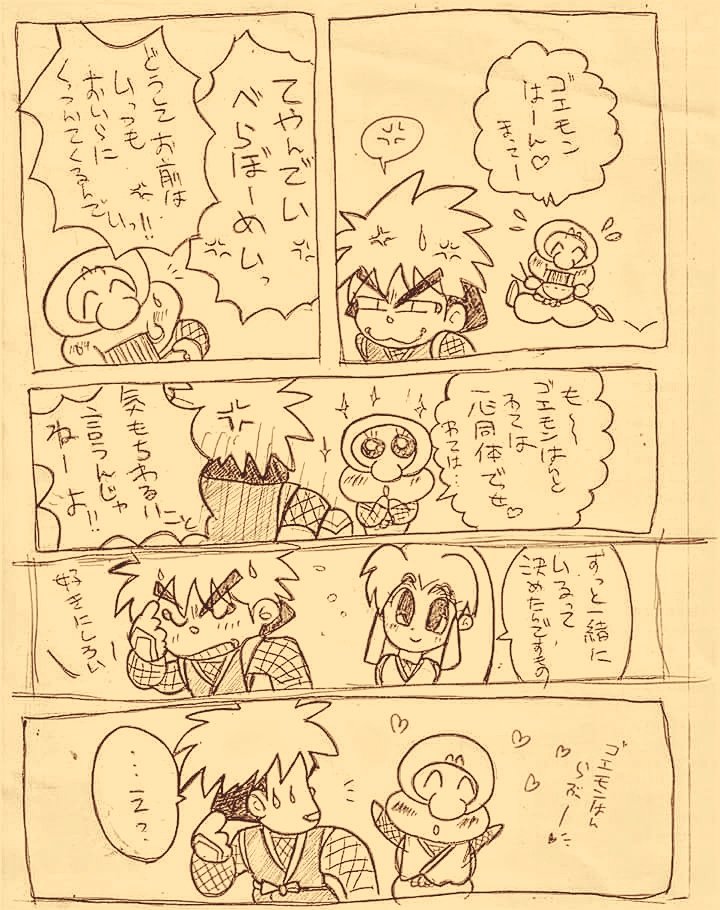 ゴエモン
はーん♡
まってー
てやんでい
べらぼーめいっ
どうしてお前は
いっつも
おいらに
くっついてくるんでいっ!!
も〜〜
ゴエモンはんと
わては
一心同体でっせ♡
わては…
気もちわるいこと
言うんじゃ
ねーよ!!
ずっと一緒に
いるって
決めたんですもの
好きにしろい
ゴエモンはん
らぶー
…えっ